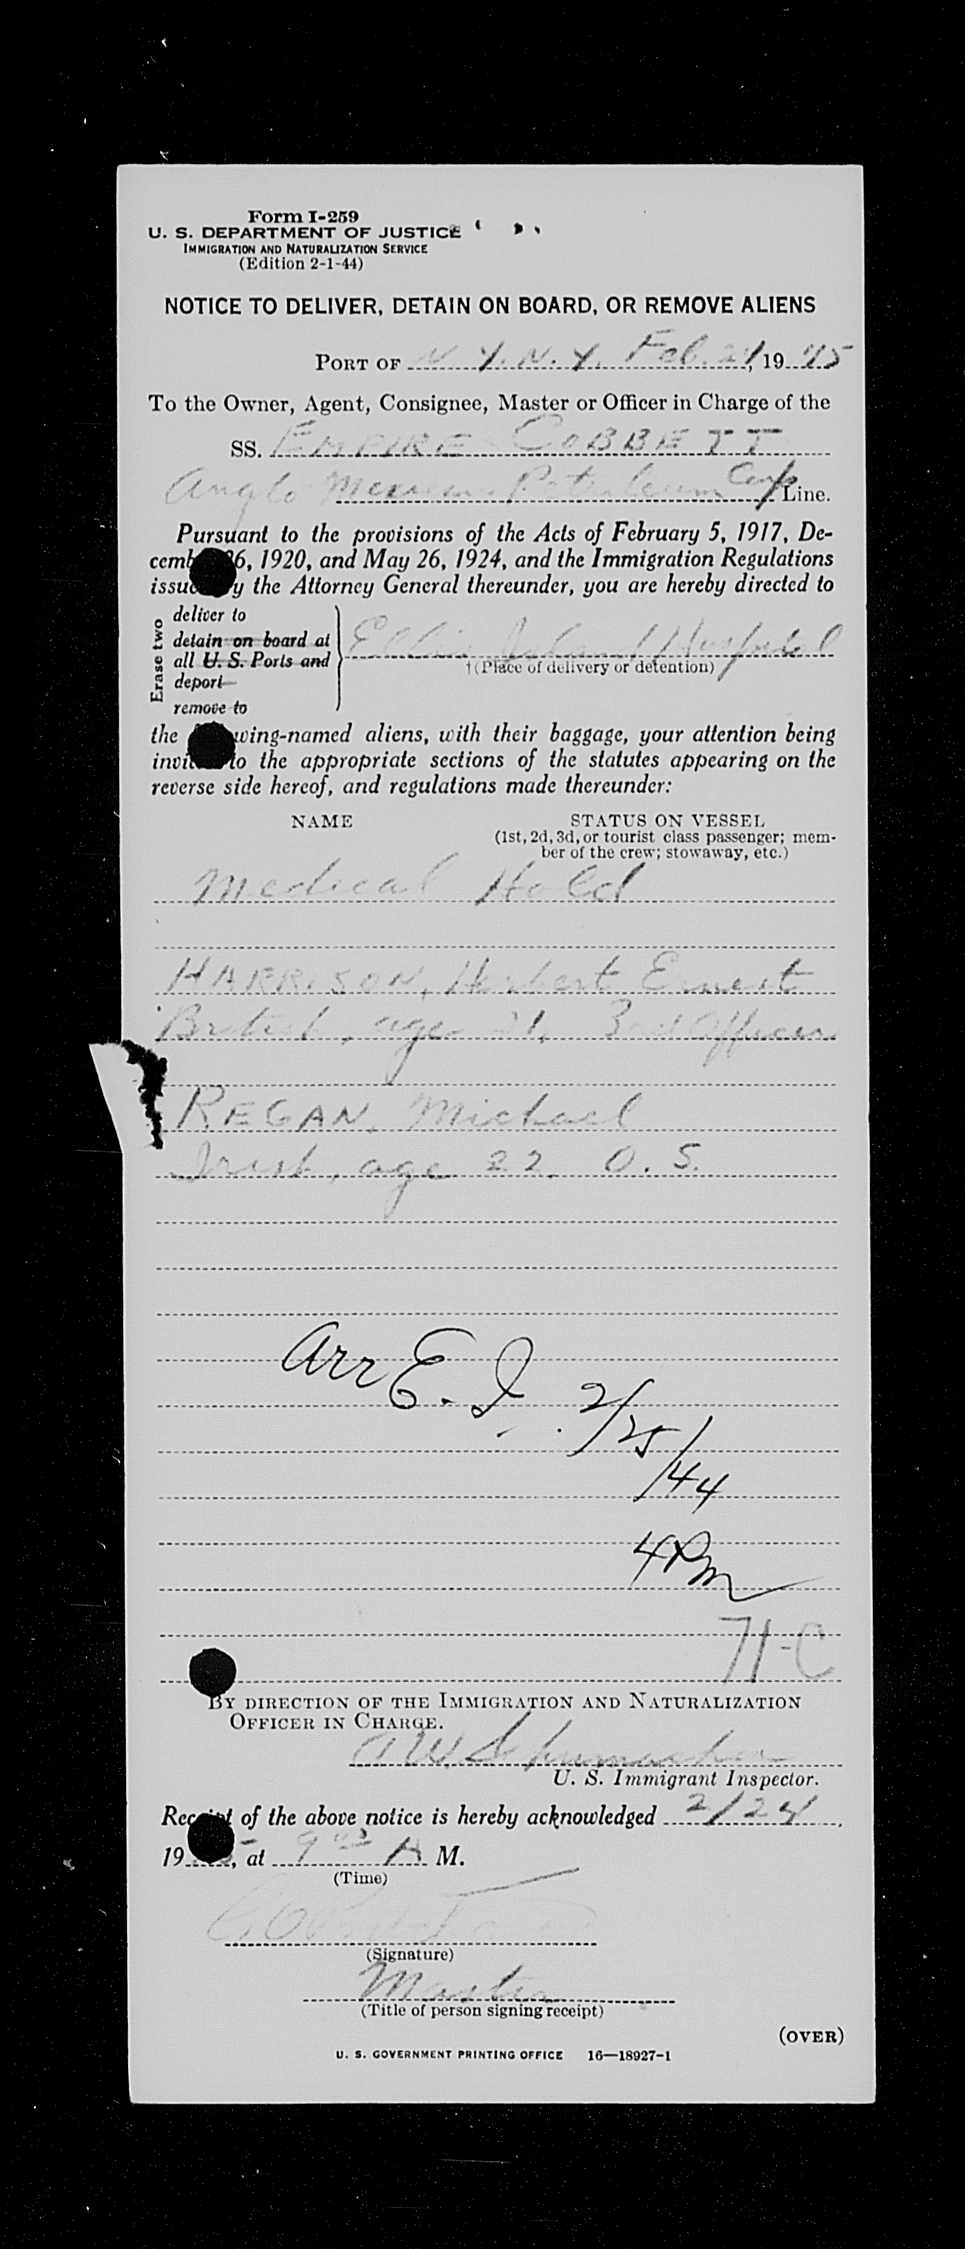 Form I-259
U. S. DEPARTMENT OF JUSTICE
IMMIGRATION AND NATURALIZATION SERVICE
(Edition 2-1-44)
NOTICE TO DELIVER, DETAIN ON BOARD, OR REMOVE ALIENS
PORT OF N. Y. N. Y. Feb. 24, 1945
To the Owner, Agent, Consignee, Master or Officer in Charge of the
SS. EMPIRE COBBETT
Anglo Mexican Petroleum Corp Line.
Pursuant to the provisions of the Acts of February 5, 1917, De-
cemb 26, 1920, and May 26, 1924, and the Immigration Regulations
issued by the Attorney General thereunder, you are hereby directed to
Erase two
deliver to
detain on board at
all U. S. Ports and
deport
remove to
Ellis Island Hospital
†(Place of delivery or detention)
the following-named aliens, with their baggage, your attention being
invited to the appropriate sections of the statutes appearing on the
reverse side hereof, and regulations made thereunder:
NAME STATUS ON VESSEL
(1st, 2d, 3d, or tourist class passenger; mem-
ber of the crew; stowaway, etc.)
Medical Hold
HARRISON, Herbert Ernest
British, age 21, 3rd Officer
REGAN, Michael
Irish, age 22. O. S.
Arr E. I. 2/25/44
4 PM
71-C
BY DIRECTION OF THE IMMIGRATION AND NATURALIZATION
OFFICER IN CHARGE.
A W. Schumacher
U. S. Immigrant Inspector.
Receipt of the above notice is hereby acknowledged 2/24,
1945, at 9 00 A M.
(Time)
(Signature)
Master
(Title of person signing receipt)
(OVER)
U. S. GOVERNMENT PRINTING OFFICE 16—18927-1